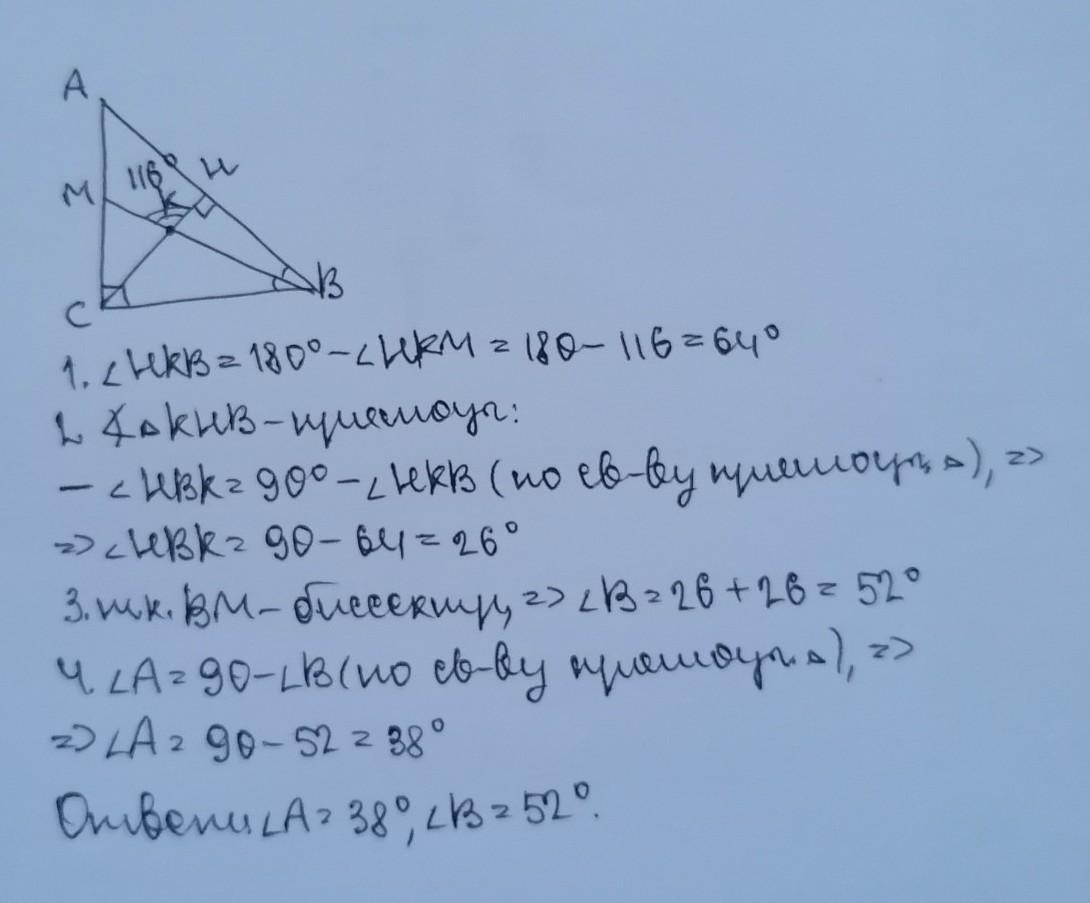 A
M
116°
H
K
C
B
1. ∠HKB = 180° - ∠HKM = 180 - 116 = 64°
2. ∡ △KHB - прямоуг:
- ∠HBK = 90° - ∠HKB (по св-ву прямоуг. △), =>
=> ∠HBK = 90 - 64 = 26°
3. т.к. BM - биссектр, => ∠B = 26 + 26 = 52°
4. ∠A = 90 - ∠B (по св-ву прямоуг. △), =>
=> ∠A = 90 - 52 = 38°
Ответ: ∠A = 38°, ∠B = 52°.